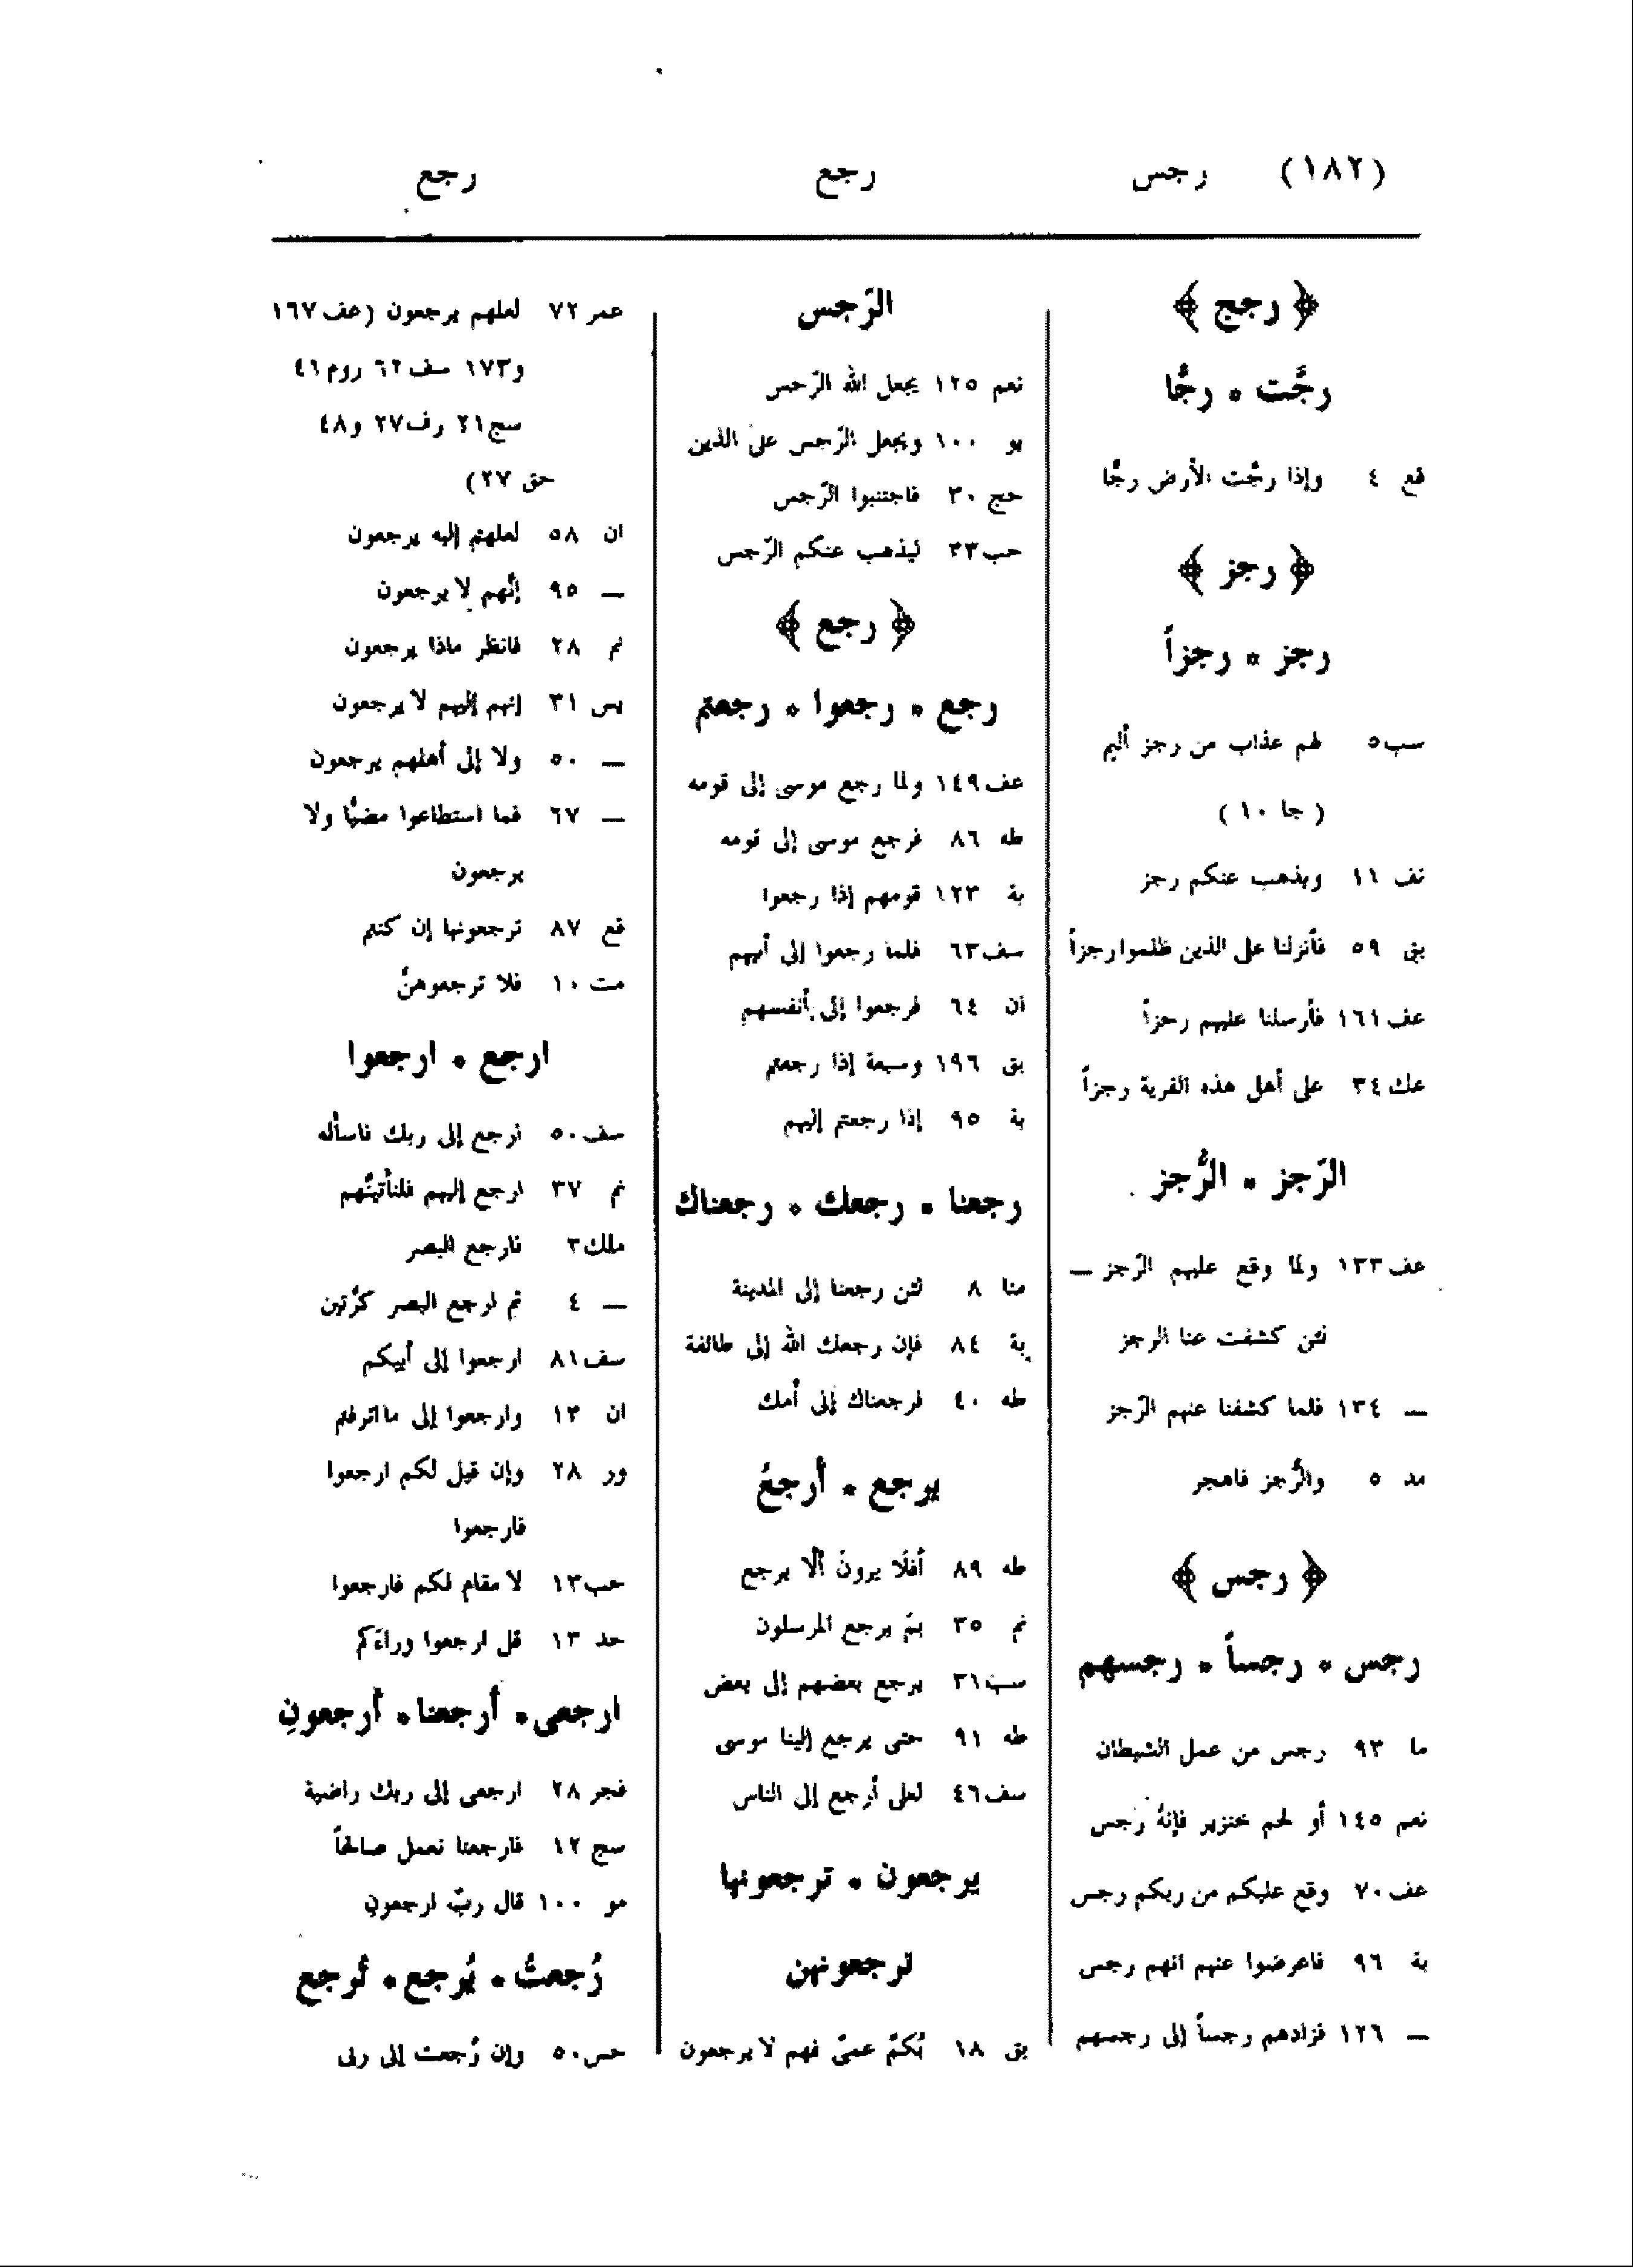 (١٨٢) رجس رجع رجع
﴿ رجج ﴾
رجَّت * رجًّا
قع ٤ وإذا رجَّت الأرض رجًّا
﴿ رجز ﴾
رجز * رجزاً
سب٥ لهم عذاب من رجز أليم
( جا ١٠ )
نف ١١ ويذهب عنكم رجز
بق ٥٩ فأنزلنا على الذين ظلموا رجزاً
عف١٦١ فأرسلنا عليهم رجزاً
عك٣٤ على أهل هذه القرية رجزاً
الرّجز * الرُّجز
عف١٣٣ ولما وقع عليهم الرّجز —
لئن كشفت عنا الرجز
— ١٣٤ فلما كشفنا عنهم الرّجز
مد ٥ والرُّجز فاهجر
﴿ رجس ﴾
رجس * رجساً * رجسهم
ما ٩٣ رجس من عمل الشيطان
نعم ١٤٥ أو لحم خنزير فإنهُ رجس
عف٧٠ وقع عليكم من ربكم رجس
بة ٩٦ فاعرضوا عنهم انهم رجس
— ١٢٦ فزادهم رجساً إلى رجسهم
الرّجس
نعم ١٢٥ يجعل الله الرّجس
يو ١٠٠ ويجعل الرّجس على الذين
حج ٣٠ فاجتنبوا الرّجس
حب٣٣ ليذهب عنكم الرّجس
﴿ رجع ﴾
رجع * رجعوا * رجعتم
عف١٤٩ ولما رجع موسى إلى قومه
طه ٨٦ فرجع موسى إلى قومه
بة ١٢٣ قومهم إذا رجعوا
سف٦٣ فلما رجعوا إلى أبيهم
ان ٦٤ فرجعوا إلى أنفسهم
بق ١٩٦ وسبعة إذا رجعتم
بة ٩٥ إذا رجعتم إليهم
رجعنا * رجعك * رجعناك
منا ٨ لئن رجعنا إلى المدينة
بة ٨٤ فإن رجعك الله إلى طائفة
طه ٤٠ فرجعناك إلى أمك
يرجع * أرجعُ
طه ٨٩ أفلَا يرونَ ألَّا يرجع
نم ٣٥ بمَ يرجع المرسلون
سب٣١ يرجع بعضهم إلى بعض
طه ٩١ حتى يرجع إلينا موسى
سف٤٦ لعلى أرجع إلى الناس
يرجعون * ترجعونها
ترجعونهن
بق ١٨ بُكمٌ عمىٌ فهم لا يرجعون
عمر ٧٢ لعلهم يرجعون (عف١٦٧
و١٧٣ سف٦٢ روم٤١
سج٢١ رف٢٧ و٤٨
حق ٢٧)
ان ٥٨ لعلهم إليه يرجعون
— ٩٥ إنَّهم لا يرجعون
نم ٢٨ فانظر ماذا يرجعون
يس ٣١ إنهم إليهم لا يرجعون
— ٥٠ ولا إلى أهلهم يرجعون
— ٦٧ فما استطاعوا مضيًّا ولا
يرجعون
قع ٨٧ ترجعونها إن كنتم
مت ١٠ فلا ترجعوهنَّ
ارجع * ارجعوا
سف٥٠ ارجع إلى ربك فاسأله
نم ٣٧ ارجع إليهم فلنأتينَّهم
ملك٣ فارجع البصر
— ٤ ثم ارجع البصر كرَّتين
سف٨١ ارجعوا إلى أبيكم
ان ١٣ وارجعوا إلى ما اترفتم
ور ٢٨ وإن قيل لكم ارجعوا
فارجعوا
حب١٣ لا مقام لكم فارجعوا
حد ١٣ قل ارجعوا وراءكم
ارجعى * أرجعنا * أرجعونِ
فجر ٢٨ ارجعى إلى ربك راضية
سج ١٢ فارجعنا نعمل صالحاً
مو ١٠٠ قال ربِّ ارجعونِ
رُجعتُ * يُرجع * تُرجع
حس٥٠ وإن رُجعت إلى ربى